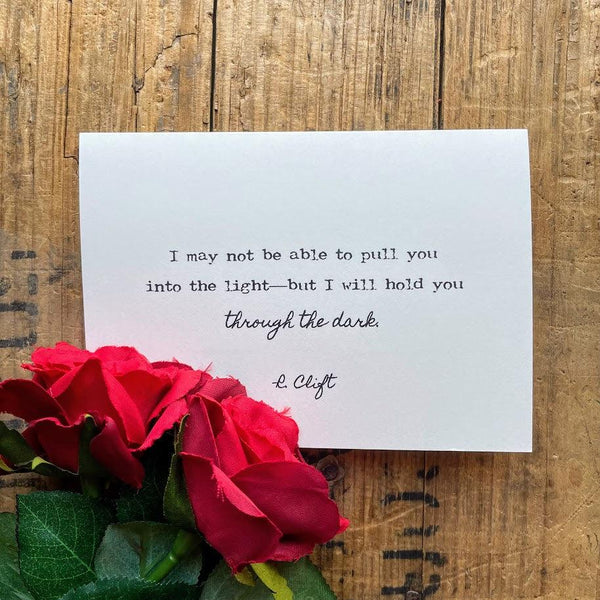 I may not be able to pull you
into the light—but I will hold you
through the dark.
R. Clift